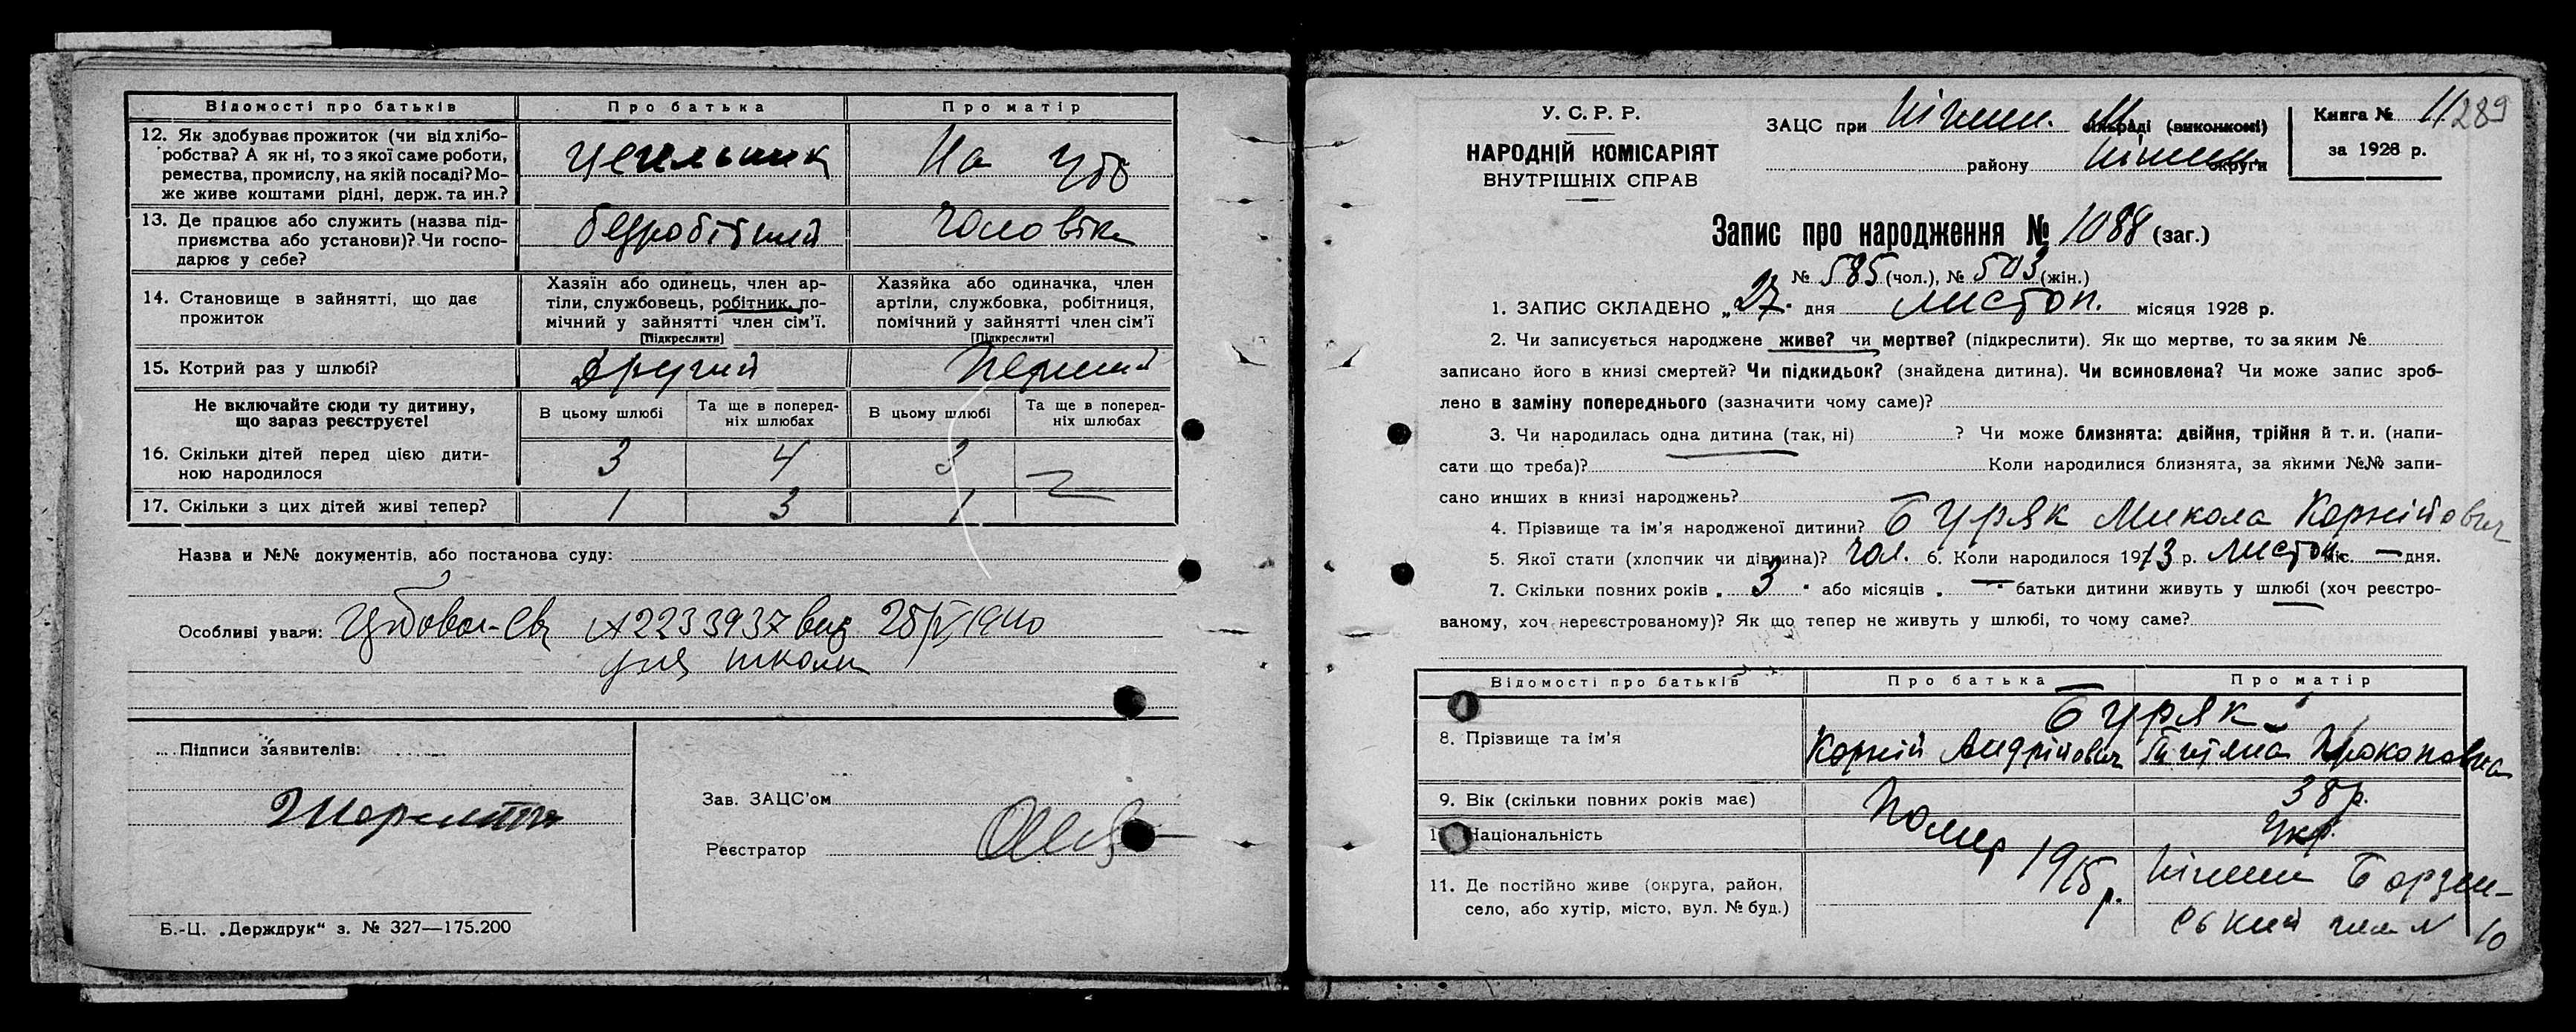 Відомості про батьків
Про батька
Про матір
12. Як здобуває прожиток (чи від хлібо-
робства? А як ні, то з якої саме роботи,
ремества, промислу, на якій посаді? Мо-
же живе коштами рідні, держ. та ин.?
На утр
13. Де працює або служить (назва під-
приємства або установи)? Чи госпо-
дарює у себе?
безробітний
чоловіка
14. Становище в зайнятті, що дає
прожиток
Хазяїн або одинець, член ар-
тіли, службовець, робітник, по-
мічний у зайнятті член сім'ї.
[Підкреслити]
Хазяйка або одиначка, член
артіли, службовка, робітниця,
помічний у зайнятті член сім'ї
[Підкреслити]
15. Котрий раз у шлюбі?
Другий
Перший
Не включайте сюди ту дитину,
що зараз реєструєте!
В цьому шлюбі
Та ще в поперед-
ніх шлюбах
В цьому шлюбі
Та ще в поперед-
ніх шлюбах
16. Скільки дітей перед цією дити-
ною народилося
3
4
3
17. Скільки з цих дітей живі тепер?
1
3
1
Назва и №№ документів, або постанова суду:
Особливі уваги: 2233937 вид 1940
для школи
Підписи заявителів:
Зав. ЗАЦС'ом
Реєстратор
Б.-Ц. „Держдрук“ з. № 327—175.200
У. С. Р. Р.
НАРОДНІЙ КОМІСАРІЯТ
ВНУТРІШНІХ СПРАВ
ЗАЦС при Ніжин. М. сільраді (виконкомі)
району Ніжин. округи
Книга № 11 289
за 1928 р.
Запис про народження № 1088 (заг.)
№ 585 (чол.), № 503 (жін.)
1. ЗАПИС СКЛАДЕНО „27. дня листоп. місяця 1928 р.
2. Чи записується народжене живе? чи мертве? (підкреслити). Як що мертве, то за яким №
записано його в книзі смертей? Чи підкидьок? (знайдена дитина). Чи всиновлена? Чи може запис зроб-
лено в заміну попереднього (зазначити чому саме)?
3. Чи народилась одна дитина (так, ні) ? Чи може близнята: двійня, трійня й т. и. (напи-
сати що треба)? Коли народилися близнята, за якими №№ запи-
сано инших в книзі народжень?
4. Прізвище та ім'я народженої дитини? Буряк Микола Корнійович
5. Якої стати (хлопчик чи дівчина)? чол. 6. Коли народилося 1913 р. листоп. міс. — дня.
7. Скільки повних років „ 3 “ або місяців „ — “ батьки дитини живуть у шлюбі (хоч реєстро-
ваному, хоч нереєстрованому)? Як що тепер не живуть у шлюбі, то чому саме?
Відомості про батьків
Про батька
Про матір
8. Прізвище та ім'я
Буряк
Корній Андрійович
Тетяна Прокоповна
9. Вік (скільки повних років має)
38 р.
10. Національність
Помер 1915 р.
Укр.
11. Де постійно живе (округа, район,
село, або хутір, місто, вул. № буд.)
Ніжин Борзен-
ський шлях N 10